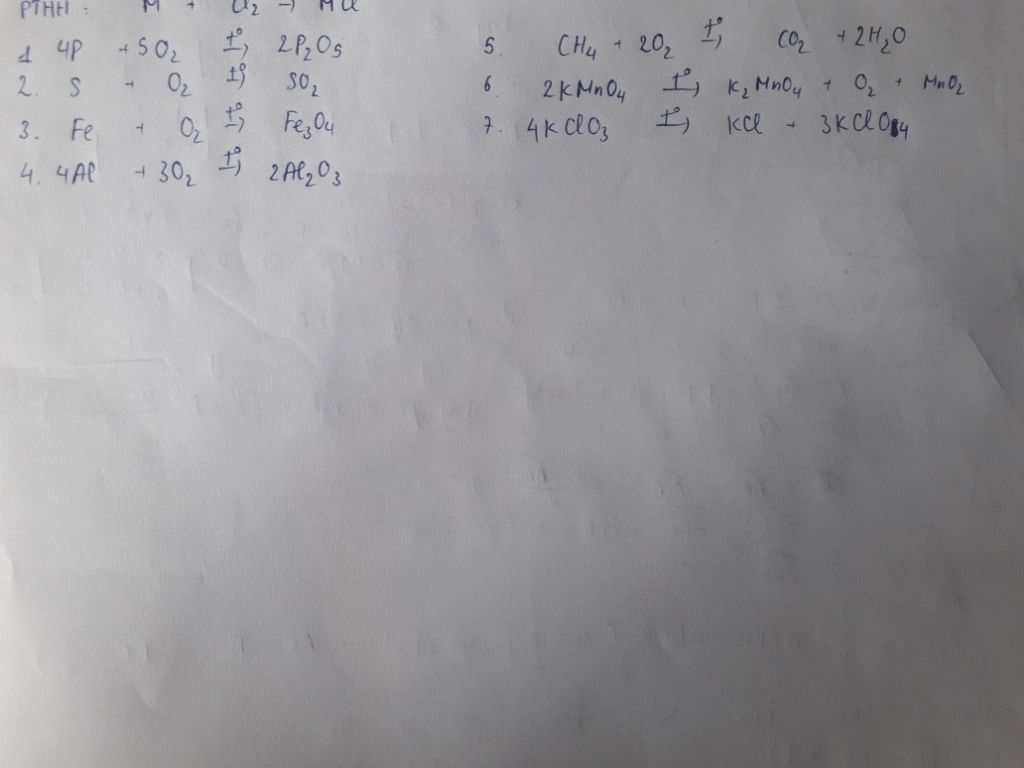 PTHH: M + Cl2 → MCl
1 4P + 5O2 t°→ 2P2O5
2. S + O2 t°→ SO2
3. Fe + O2 t°→ Fe3O4
4. 4Al + 3O2 t°→ 2Al2O3
5. CH4 + 2O2 t°→ CO2 + 2H2O
6. 2KMnO4 t°→ K2MnO4 + O2 + MnO2
7. 4KClO3 t°→ KCl + 3KClO4